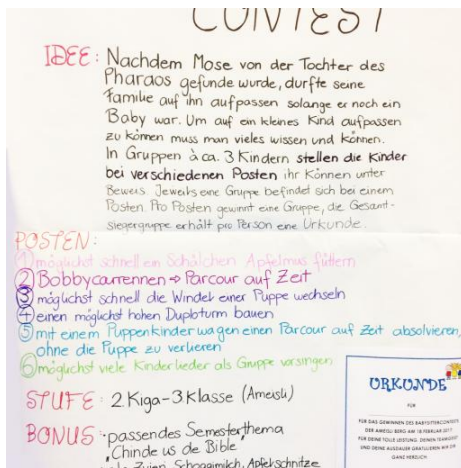 CONTEST
IDEE: Nachdem Mose von der Tochter des
Pharaos gefunde wurde, durfte seine
Familie auf ihn aufpassen solange er noch ein
Baby war. Um auf ein kleines Kind aufpassen
zu können muss man vieles wissen und können.
In Gruppen à ca. 3 Kindern stellen die Kinder
bei verschiedenen Posten ihr Können unter
Beweis. Jeweils eine Gruppe befindet sich bei einem
Posten. Pro Posten gewinnt eine Gruppe, die Gesamt-
siegergruppe erhält pro Person eine Urkunde.
POSTEN:
1 möglichst schnell ein Schälchen Apfelmus füttern
2 Bobbycarrennen → Parcour auf Zeit
3 möglichst schnell die Windel einer Puppe wechseln
4 einen möglichst hohen Duploturm bauen
5 mit einem Puppenkinderwagen einen Parcour auf Zeit absolvieren,
ohne die Puppe zu verlieren
6 möglichst viele Kinderlieder als Gruppe vorsingen
STUFE: 2.Kiga-3Klasse (Ameisli)
BONUS: -passendes Semesterthema
"Chinde us de Bible"
Zvieri, Schoggimilch, Apfelschnitze
URKUNDE
FÜR
FÜR DAS GEWINNEN DES BABYSITTERCONTESTS
DER AMEISLI BERG AM 18.FEBRUAR 2017.
FÜR DEINE TOLLE LEISTUNG, DEINEN TEAMGEIST
UND DEINE AUSDAUER GRATULIEREN WIR DIR
GANZ HERZLICH